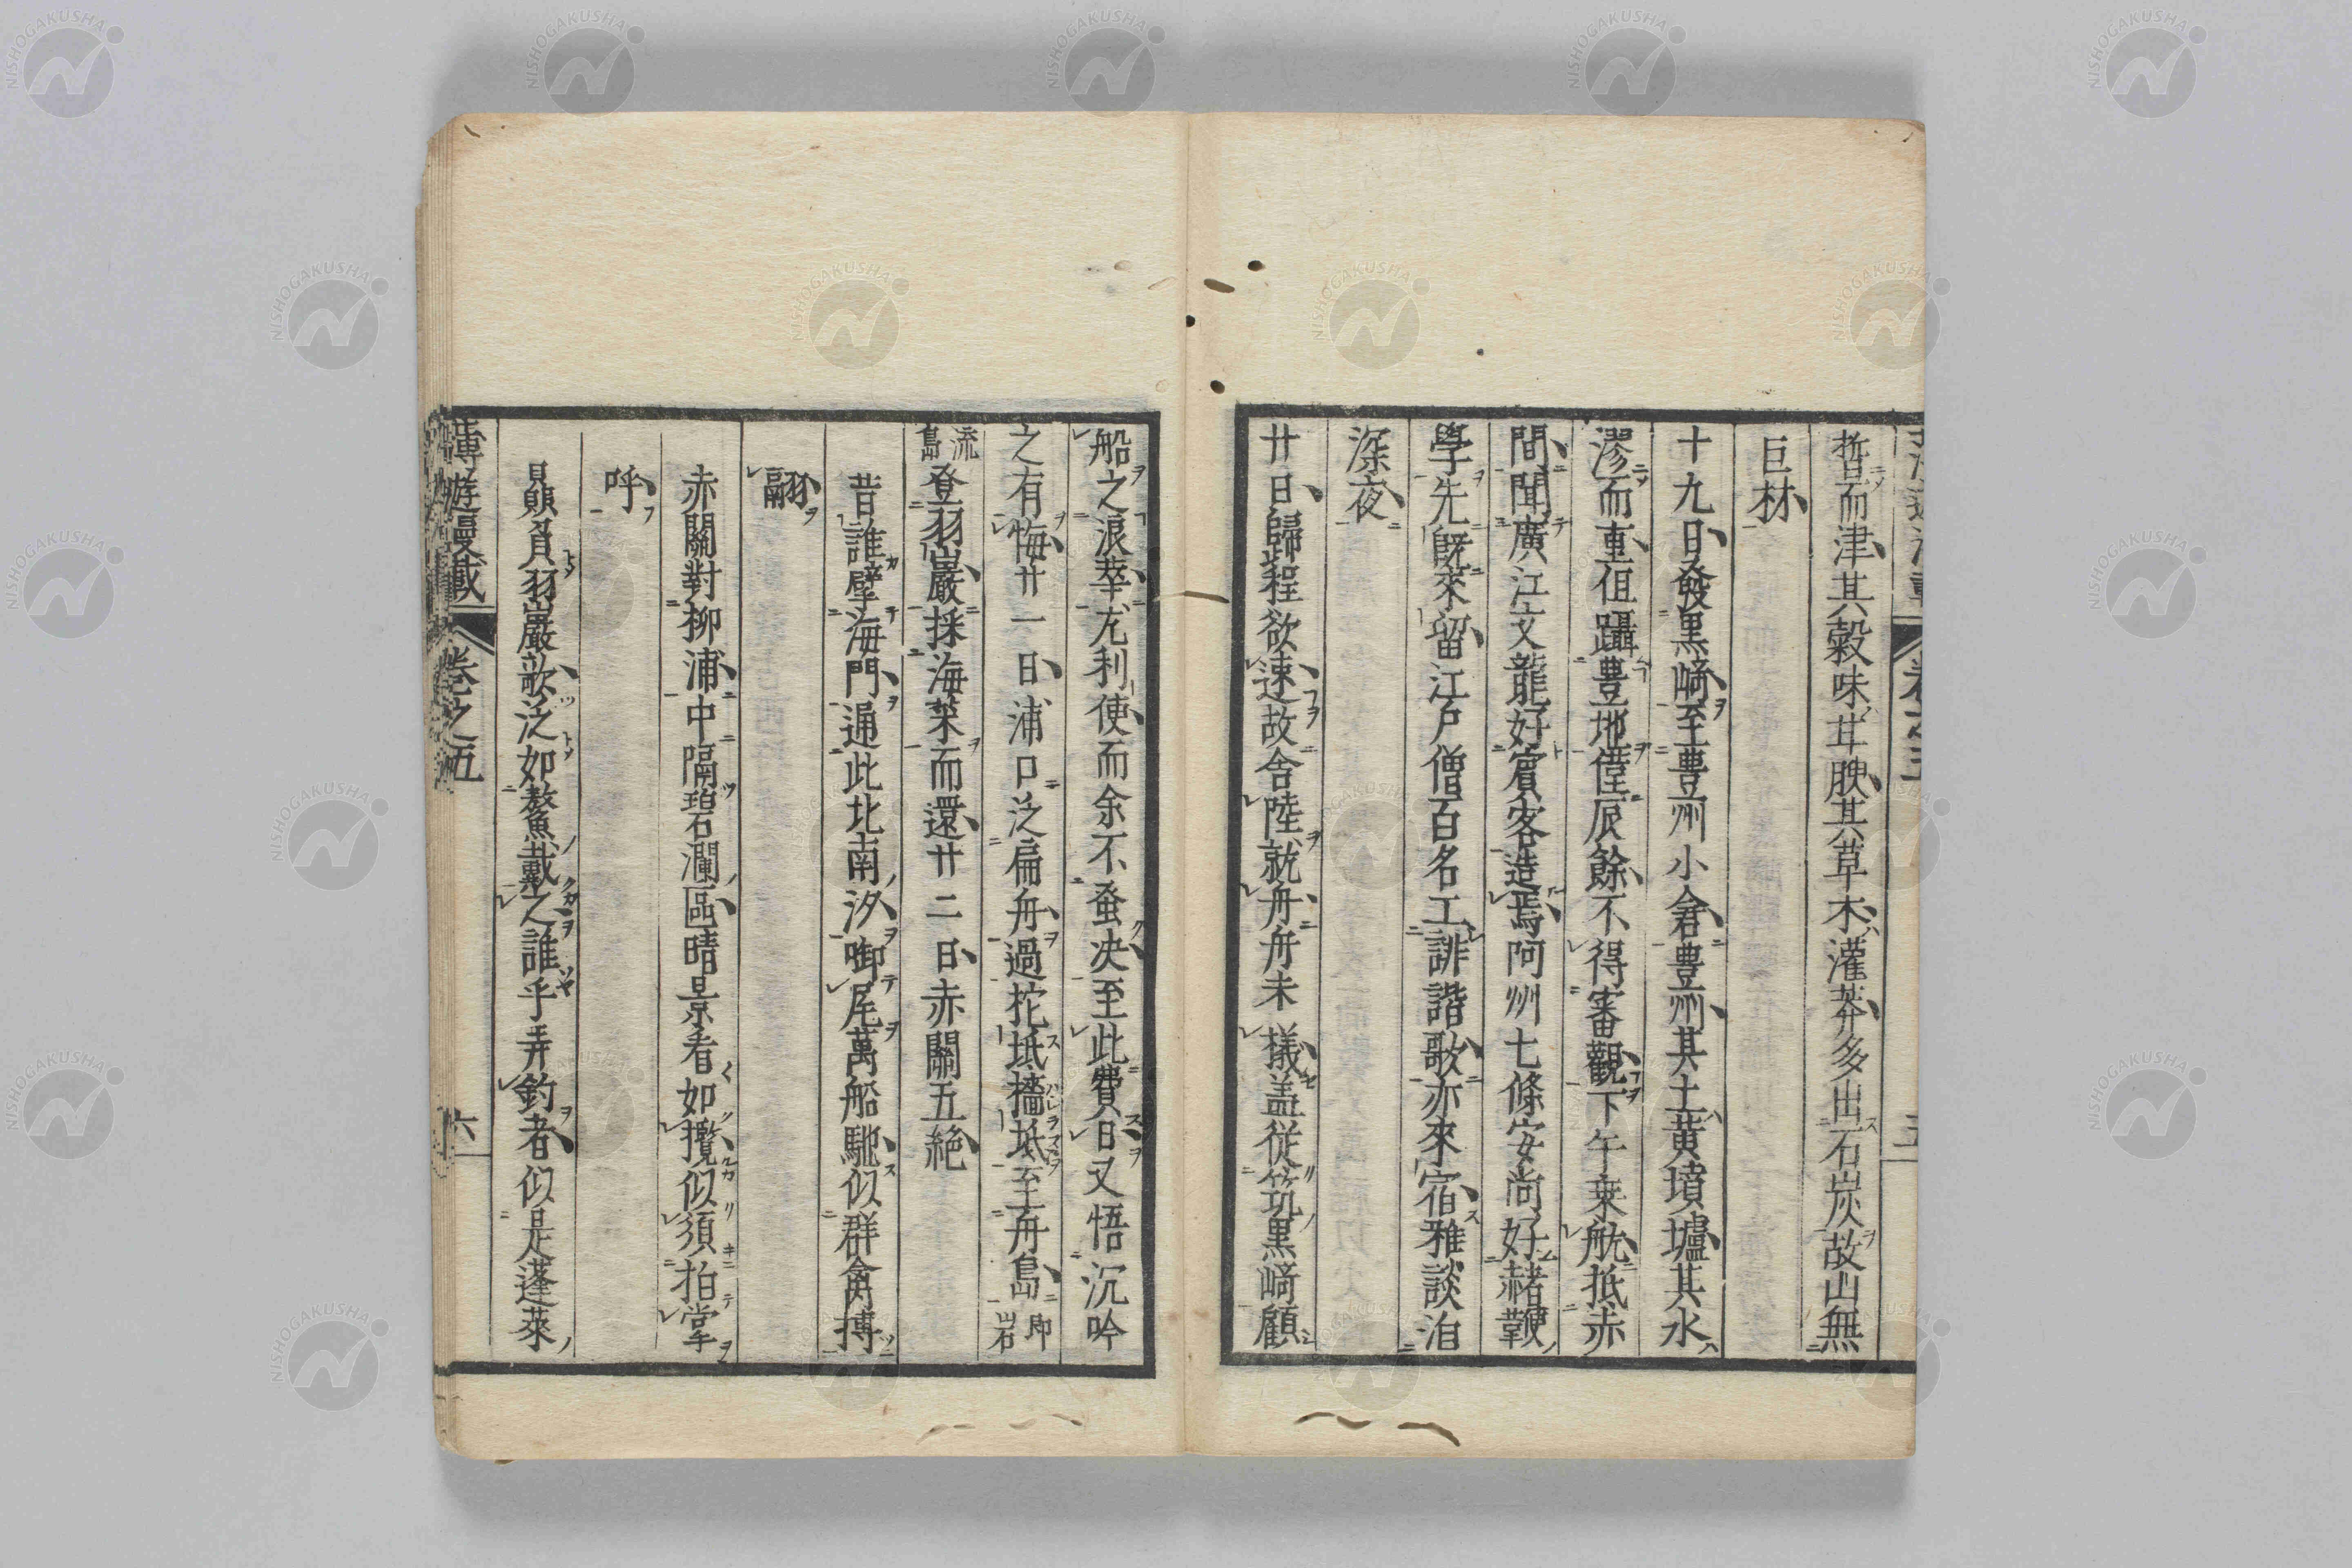 晳而津其穀味甘腴其草木灌莽多出石炭故山無
巨材
十九日發黑﨑至豊州小倉豊州其土黄墳壚其水
漻而重徂躡豊地僅辰餘不得審觀下午乗航抵赤
間聞廣江文龍好賓客造焉阿州七條安尚好赭鞭
學先既來留江戸僧百名工誹諧歌亦來宿雅談洎
深夜
廿日歸程欲速故舎陸就舟舟未檥盖従筑黒﨑顧
船之浪華尤利使而余不蚤决至此費日又悟沉吟
之有悔廿一日浦口泛扁舟過拕坻檣坻至舟島 即岩
流島 登羽巖採海菜而還廿二日赤關五絶
昔誰擘海門通此北南汐啣尾萬船馳似群禽摶
翮
赤關對柳浦中隔碧瀾區晴景看如攬似須拍掌
呼
贔屓羽巖歌泛如鰲戴之誰乎弄釣者似是蓬萊
薄遊漫載 巻之五 六
NISHOGAKUSHA